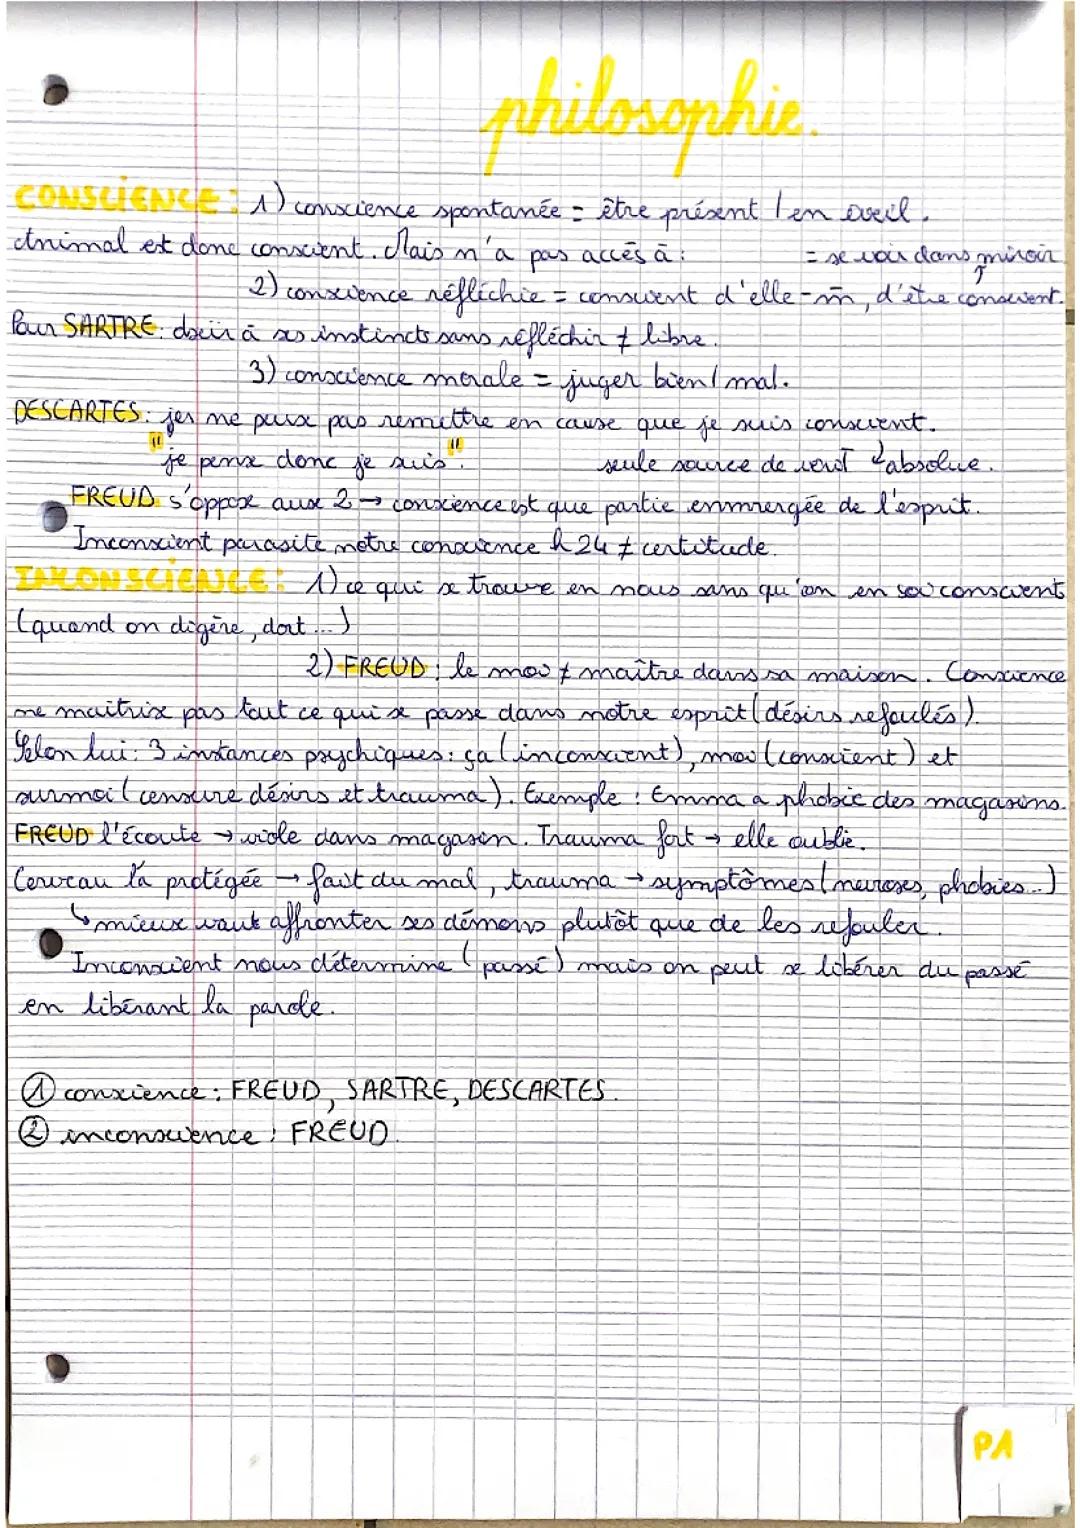 philosophie.
CONSCIENCE: 1) conscience spontanée = être présent / en éveil.
Animal est donc conscient. Mais n'a pas accès à : = se voir dans miroir
2) conscience réfléchie = conscient d'elle-m̄, d'être conscient.
Pour SARTRE: obéir à ses instincts sans réfléchir ≠ libre.
3) conscience morale = juger bien / mal.
DESCARTES: je ne peux pas remettre en cause que je suis conscient.
"je pense donc je suis". seule source de vérité absolue.
FREUD s'oppose aux 2 → conscience est que partie emmergée de l'esprit.
Inconscient parasite notre conscience h24 ≠ certitude.
INCONSCIENCE: 1) ce qui se trouve en nous sans qu'on en soi conscient
(quand on digère, dort ...)
2) FREUD : le moi ≠ maître dans sa maison. Conscience
ne maîtrise pas tout ce qui se passe dans notre esprit (désirs refoulés).
Selon lui : 3 instances psychiques : ça (inconscient), moi (conscient) et
surmoi (censure désirs et trauma). Exemple : Emma a phobie des magasins.
FREUD l'écoute → viole dans magasin. Trauma fort → elle oublie.
Cerveau l'a protégée → fait du mal, trauma → symptômes (nevroses, phobies...)
↳ mieux vaut affronter ses démons plutôt que de les refouler.
Inconscient nous détermine (passé) mais on peut se libérer du passé
en libérant la parole.
① conscience : FREUD, SARTRE, DESCARTES.
② inconscience : FREUD.
P1